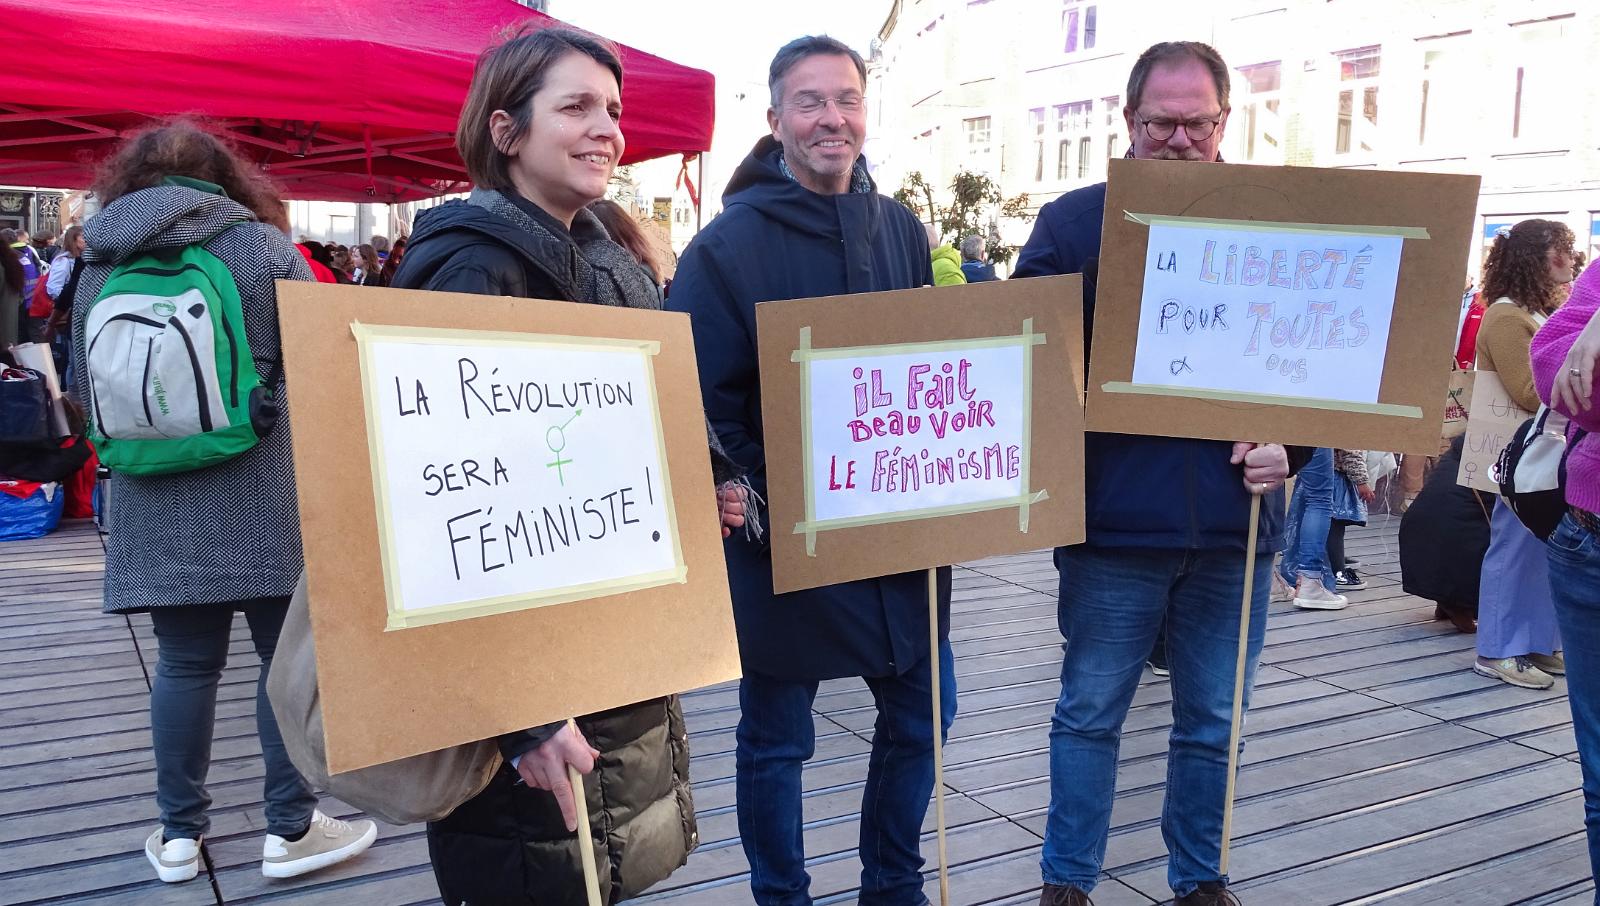 LA RÉVOLUTION
SERA
FÉMINISTE !
iL Fait
Beau VOiR
LE FÉMiNiSME
LA LiBERTÉ
POUR TOUTES
& OUS
UN
UNE